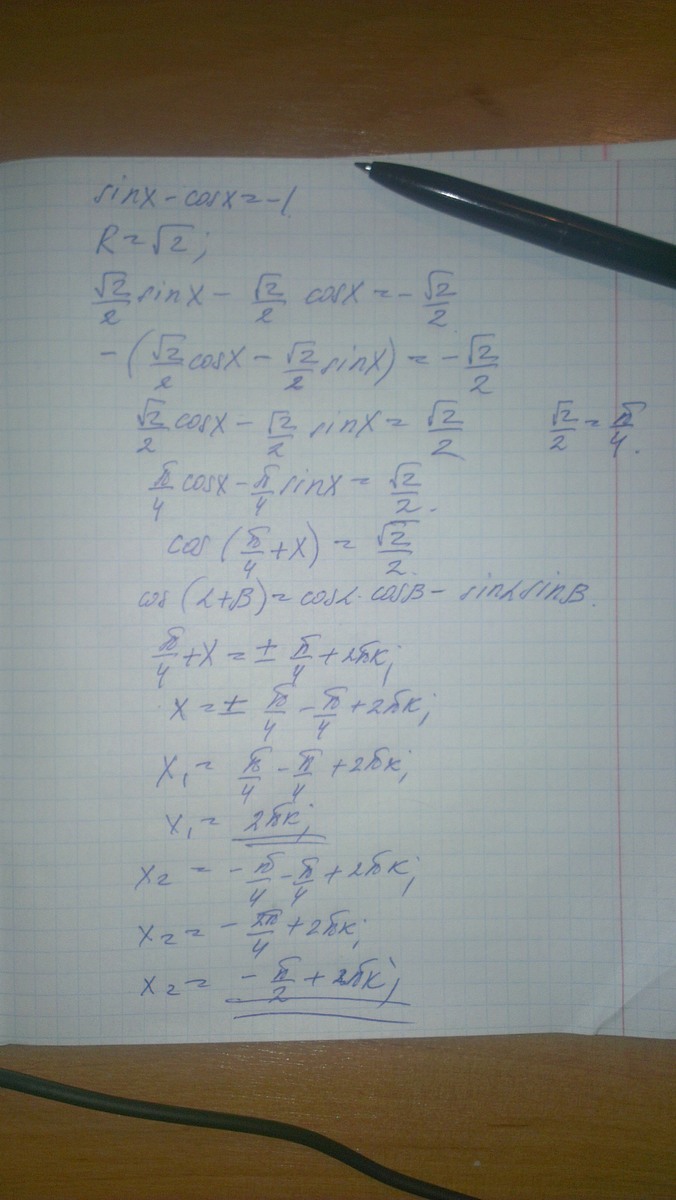 sinx - cosx = -1.
R = √2;
√2/2 sinx - √2/2 cosx = - √2/2
- (√2/2 cosx - √2/2 sinx) = - √2/2
√2/2 cosx - √2/2 sinx = √2/2 √2/2 = π/4.
π/4 cosx - π/4 sinx = √2/2.
cos (π/4 + x) = √2/2.
cos (α+β) = cosα · cosβ - sinα sinβ.
π/4 + x = ± π/4 + 2πк;
x = ± π/4 - π/4 + 2πк;
x₁ = π/4 - π/4 + 2πк;
x₁ = 2πк;
x₂ = - π/4 - π/4 + 2πк;
x₂ = - 2π/4 + 2πк;
x₂ = - π/2 + 2πк;